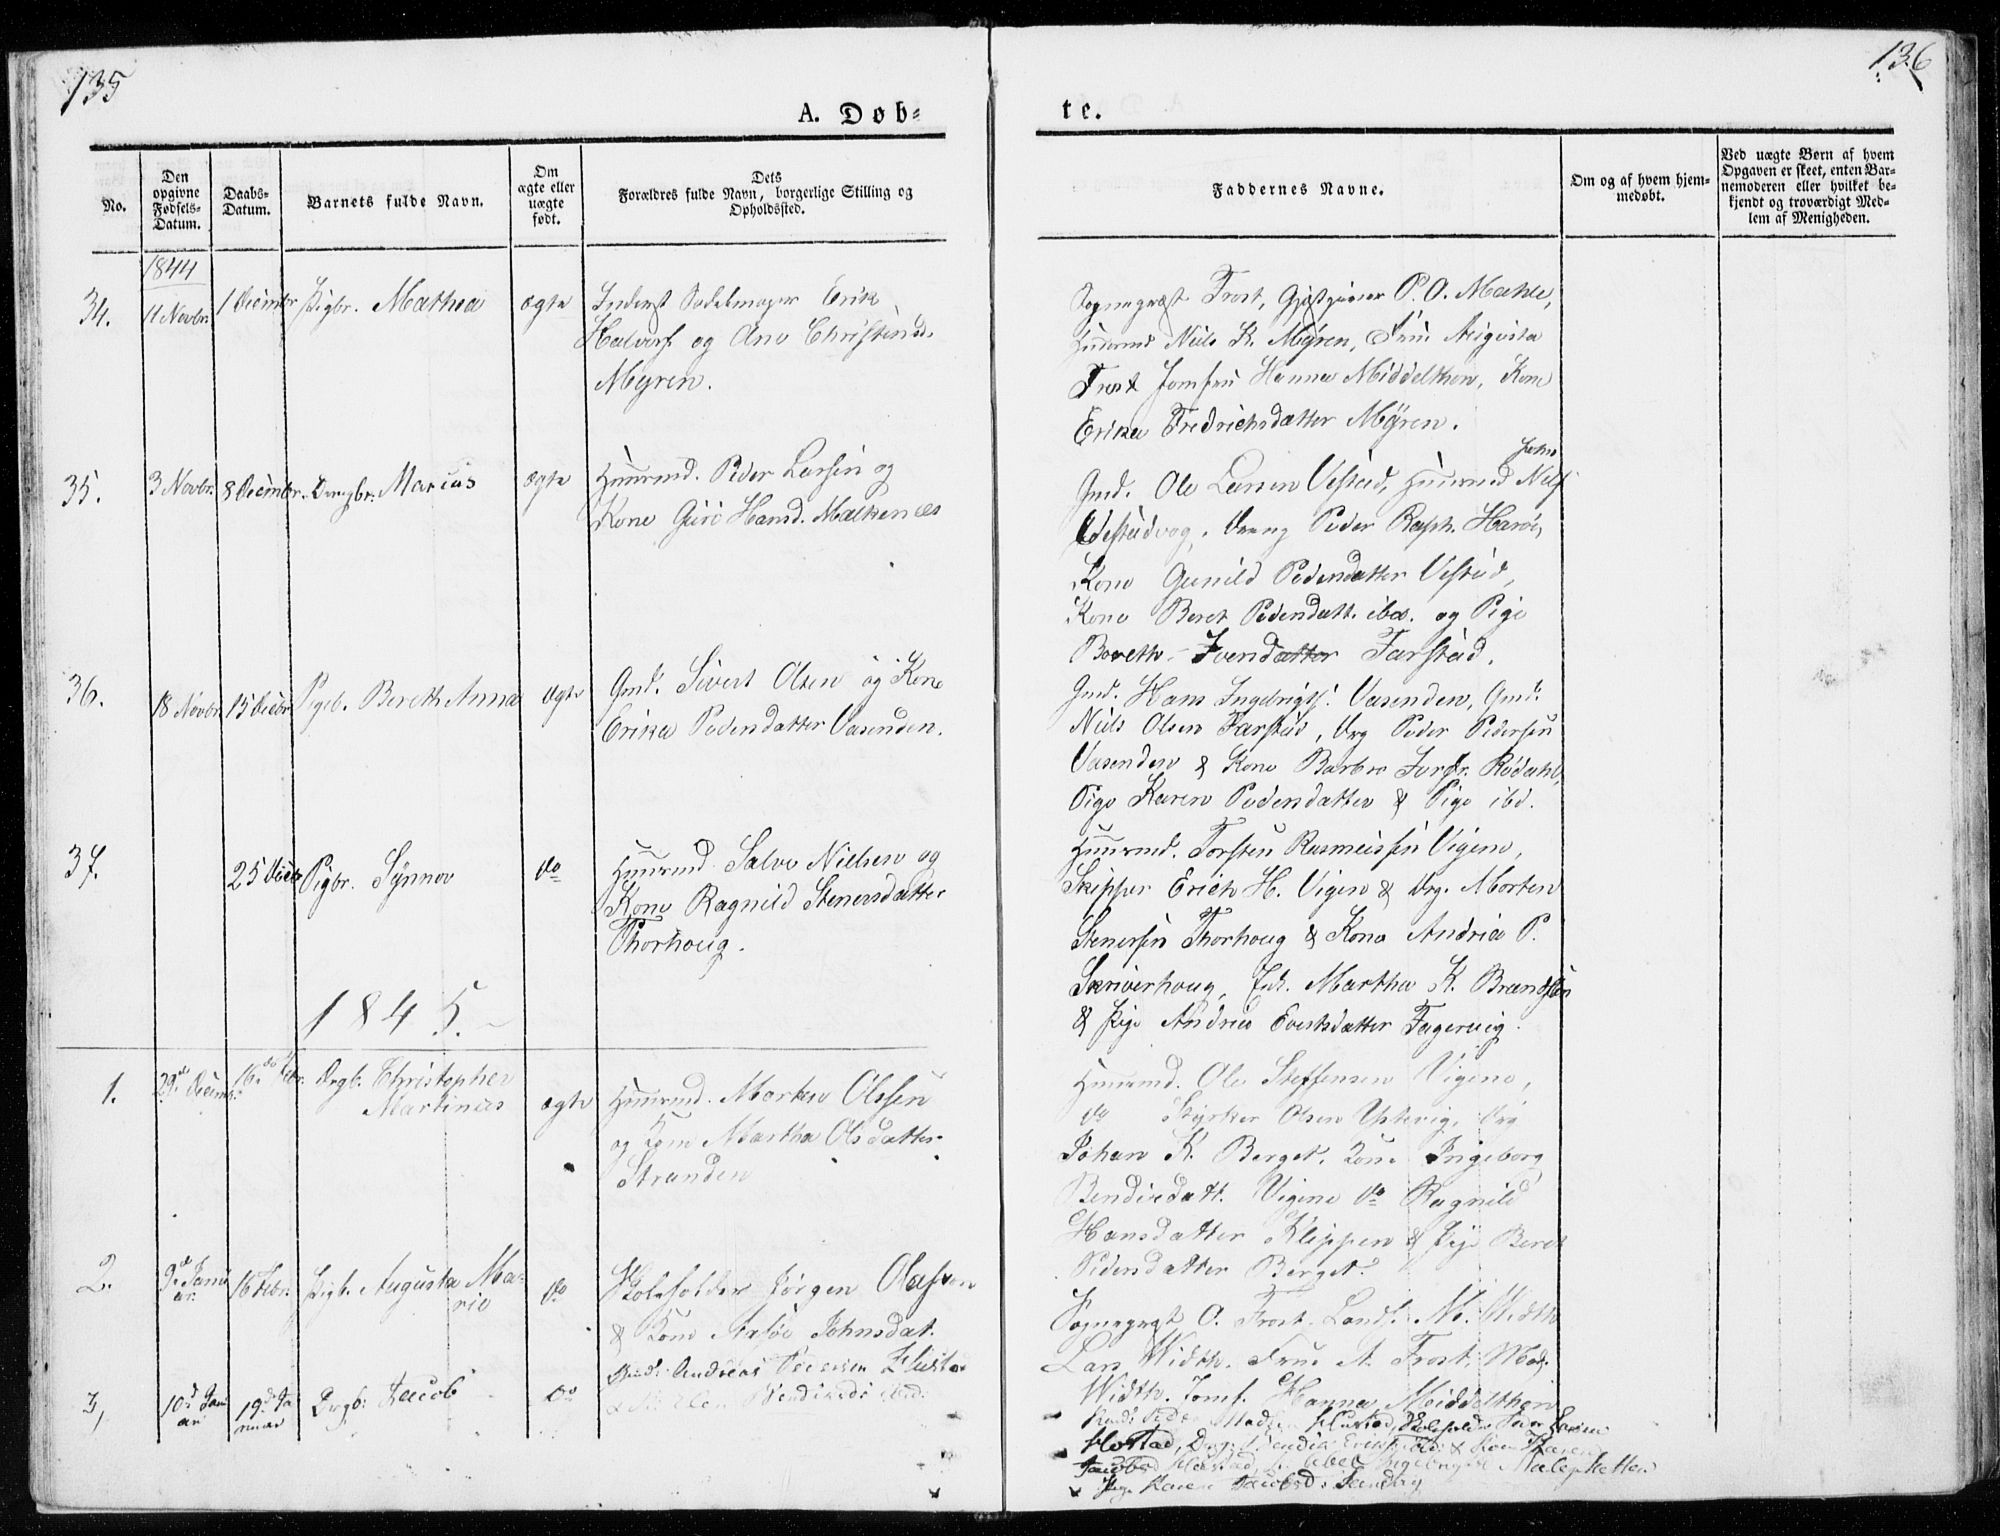 135
136
A. Døb-
te.
No.
Den opgivne Fødsels-Datum.
Daabs-Datum.
Barnets fulde Navn.
Om ægte eller uægte født.
Dets Forældres fulde Navn, borgerlige Stilling og Opholdssted.
Faddernes Navne.
Om og af hvem hjemmedøbt.
Ved uægte Børn af hvem Opgaven er skeet, enten Barnemoderen eller hvilket bekjendt og troværdigt Medlem af Menigheden.
1844
34. 11 Novbr. 1 Decimbr Pigbr. Mathea ægte
Inderst Sadelmager Erik
Halvors. og Ane Christensd.
Myren.
Sognepræst Frost, Gjæstgiver P. O. Mæhle,
Huusmd Niels K. Myren, Fru Augusta
Frost Jomfru Hanna Middelthon, Kone
Erika Fredrichsdatter Myren.
35. 3 Novbr. 8 Decimbr. Drengbr. Marius ægte
Huusmd. Peder Larsen og
Kone Guri Hansd. Malkenæs
John
Gmd. Ole Larsen Vestad, Huusmd Nils
Vestadvog, Dreng Peder Raph. Harøe,
Kone Gunild Pedersdatter Vestad,
Kone Beret Pedersdatt. ibd. og Pige
Bereth Iversdatter Farstad.
36. 18 Novbr. 15 Decbr. Pigeb. Bereth Anna ægte
Gmd. Sivert Olsen og Kone
Erika Pedersdatter Vasenden.
Gmd. Hans Ingebrigts. Vasenden, Gmd.
Niels Olsen Farstad, Drg Peder Pedersen
Vasenden & Kone Barbro Rødahl,
Pige Karen Pedersdatter & Pige ibd.
37. 25 Decbr Pigbr. Synnov do
Huusmd. Salve Nielsen og
Kone Ragnild Stenersdatter
Thorhoug.
Huusmd. Torsten Rasmussen Vigene,
Skipper Erich H. Vigen & Drg. Morten
Stenersen Thorhoug & Kone Andria P.
Skriverhoug, Enk. Martha K.
& Pige Andrea Evertsdatter Fagervig.
1845.
1. 29de Decemb. 16de Febr. Drgb. Christopher
Martinus ægte
Huusmd. Morten Olssen
og Kone Martha Olsdatter
Stranden
Huusmd. Ole Steffensen Vigene,
do Olsen Drg
Johan K. Berget. Kone Ingeborg
Bendixdatt. Vigene do Ragnild
Hansdatter Kleppen & Pige Beret
Pedersdatter Berget.
2. 9de Januar. 16 Febr. Pigb. Augusta Marie do
Jørgen Olafsen
& Kone Johnsdat.
Sognepræst O. Frost.
Lars Width. Frue A. Frost, Mad.
Width. Jomf. Hanna Middelthon
3, 10d Januar 19d Januar Drgb: Jacob do
Andreas Pedersen Hustad
Elen Bendixsd: ibid:
Peder Madsen Hustad, Peder Larsen
Hostad, Drg: & Kone Karen
Jacobsd Hustad, Malefetten
Pige Karen Jacobsd: